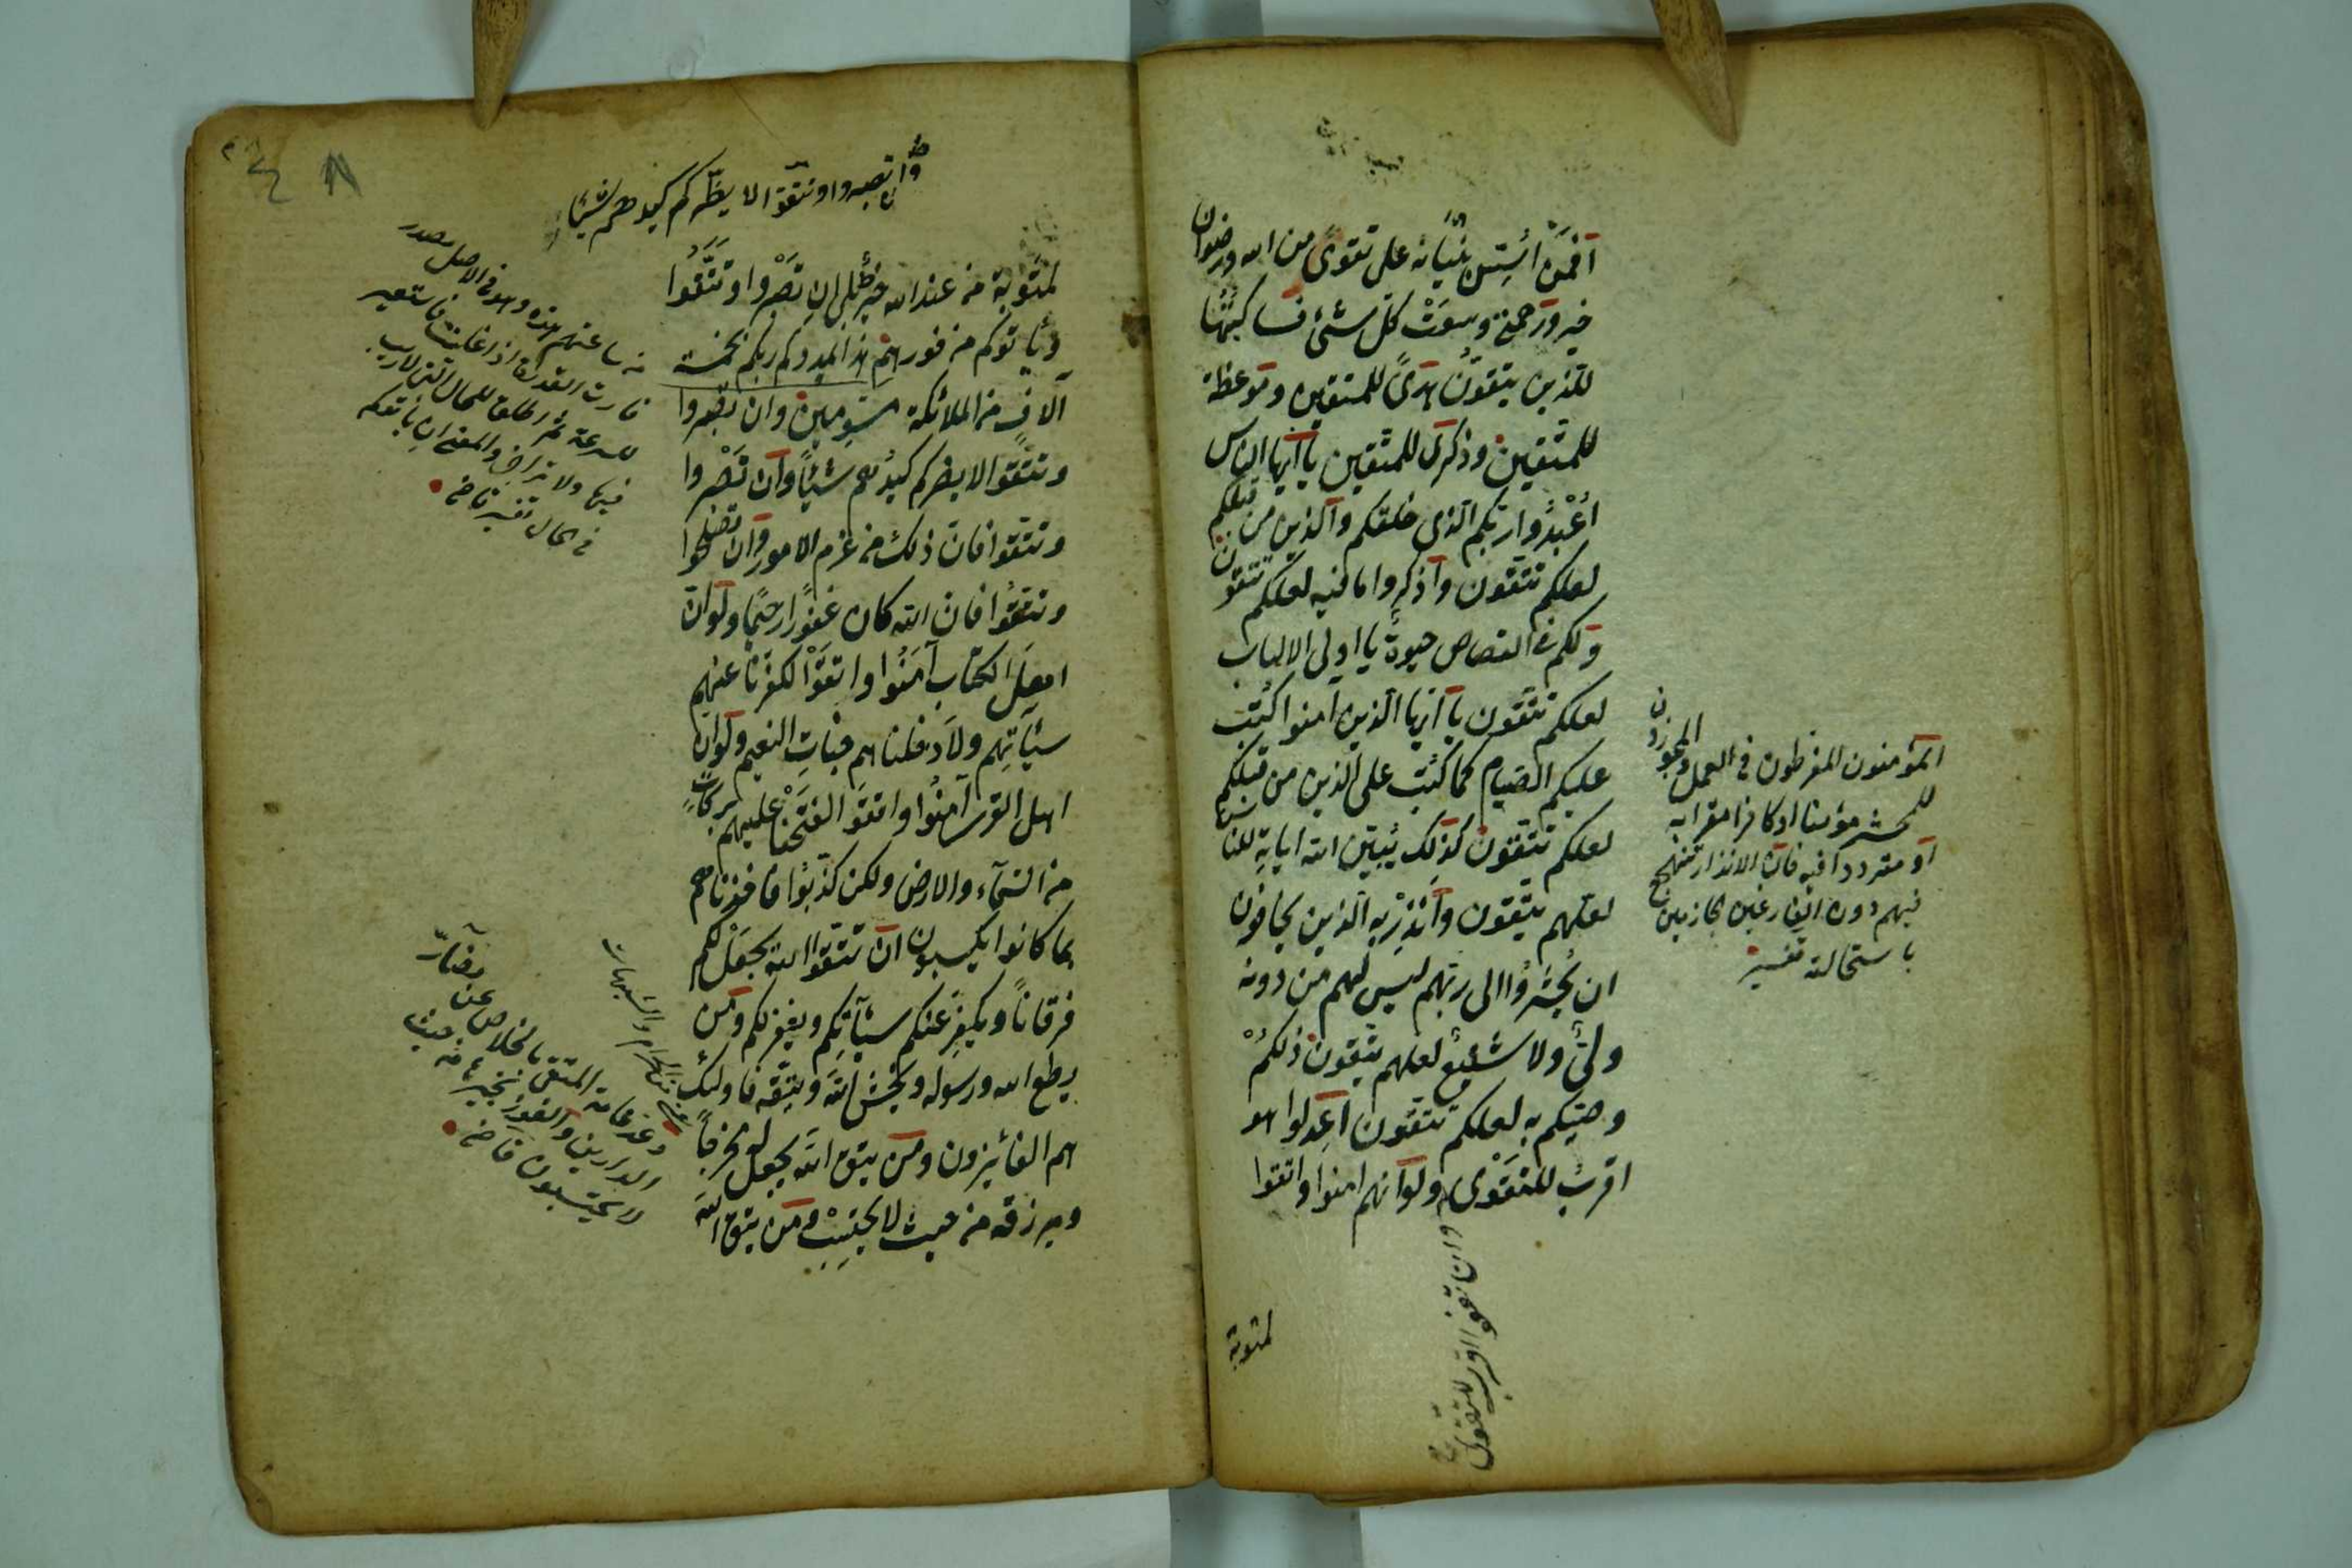 افمن اسس بنيانه على تقوى من الله ورضوان
خير ورحمتى وسعت كل شئ فساكتبها
للذين يتقون هدى للمتقين وموعظة
للمتقين وذكرى للمتقين يا ايها الناس
اعبدوا ربكم الذى خلقكم والذين من قبلكم
لعلكم تتقون واذكروا ما فيه لعلكم تتقون
ولكم فى القصاص حيوة يا اولى الالباب
لعلكم تتقون يا ايها الذين آمنوا كتب
عليكم الصيام كما كتب على الذين من قبلكم
لعلكم تتقون كذلك يبين الله اياته للناس
لعلهم يتقون وانذر به الذين يخافون
ان يحشروا الى ربهم ليس لهم من دونه
ولى ولا شفيع لعلهم يتقون ذلكم
وصيكم به لعلكم تتقون اعدلوا هو
اقرب للتقوى ولو انهم امنوا واتقوا
لمثوبة
المؤمنون المفرطون فى العمل
للحشر مؤمنا او كافرا مقرا به
او مترددا فيه فان الانذار ينجع
فيهم دون الفارغين الجازمين
باستحالته تفسير
وان تصبروا وتتقوا لا يضركم كيدهم شيئا
لمثوبة من عند الله خير بلى ان تصبروا وتتقوا
وياتوكم من فورهم هذا يمددكم ربكم بخمسة
آلاف من الملائكة مسومين وان تصبروا
وتتقوا لا يضركم كيدهم شيئا وان تصبروا
وتتقوا فان ذلك من عزم الامور وان تصلحوا
وتتقوا فان الله كان غفورا رحيما ولو ان
اهل الكتاب آمنوا واتقوا لكفرنا عنهم
سيآتهم ولادخلناهم جنات النعيم ولو ان
اهل القرى آمنوا واتقوا لفتحنا عليهم بركات
من السماء والارض ولكن كذبوا فاخذناهم
بما كانوا يكسبون ان تتقوا الله يجعل لكم
فرقانا ويكفر عنكم سيآتكم ويغفر لكم ومن
يطع الله ورسوله ويخش الله ويتقه فاولئك
هم الفائزون ومن يتق الله يجعل له مخرجا
ويرزقه من حيث لا يحتسب ومن يتق الله
من ساعتهم هذه وهو فى الاصل مصدر
فارت القدر اذا غلت فاستعير
للسرعة ثم اطلق للحال التى لا ريب
فيها ولا تراخى والمعنى ان ياتوكم
فى الحال تفسير قاضى
وعد عامة المتقى بالخلاص عن مضار
الدارين والفوز بخيرهما من حيث
لا يحتسبون قاضى